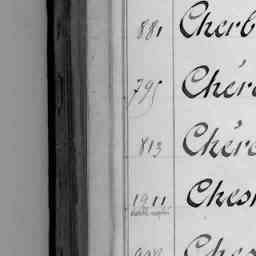 881 Cherb
795 Chér
813 Chér
1911 Ches
Ches